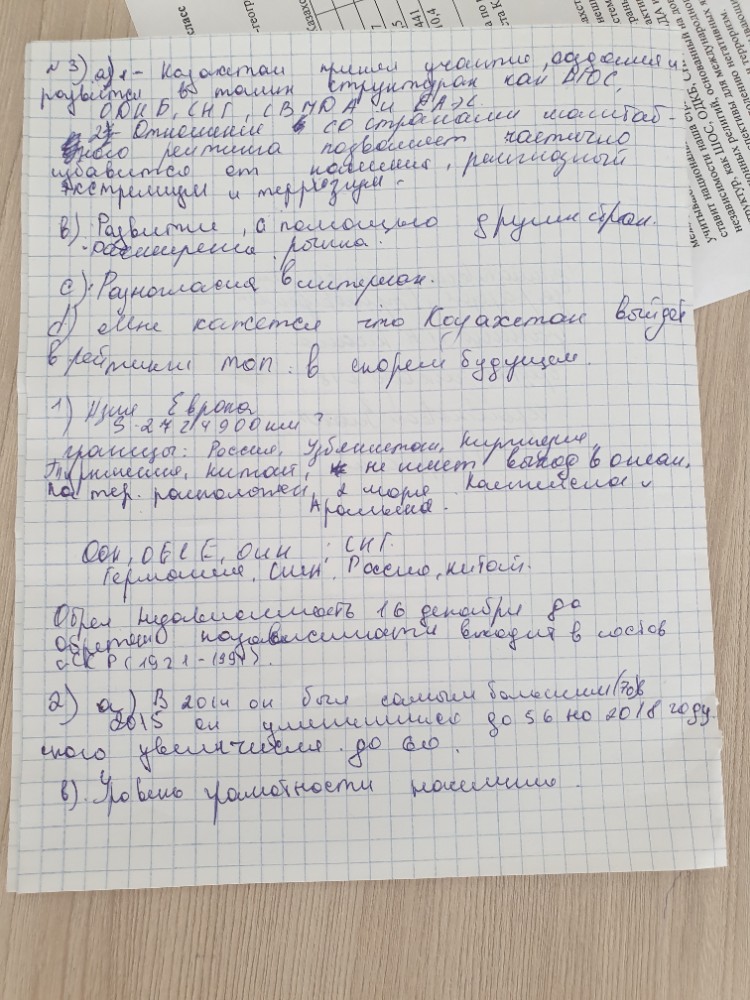 №3) а) 1 - Казахстан принял участие, создания и
развития в таких структурах как ШОС,
ОДКБ, СНГ, СВМДА и ЕАЭС.
2) Отношений со странами масштаб-
ного рейтинга позволяет частично
избавится от насилия, религиозный
экстремизм и терроризм.
в) Развитие, с помощью других стран.
расширение рынка.
с) Разногласия в интересах.
d) Мне кажется что Казахстан выйдет
в рейтинги топ в скором будущем.
1) Азия Европа
S. 2724900 км ?
границы: Россия, Узбекистан, Киргизия,
Туркмения, Китай, не имеет выход в океан,
на тер. расположен, 2 моря Каспийское и
Аральское.
ООН, ОБСЕ, ОИК, СНГ.
Германия, США, Россия, Китай.
Обрел независимость 16 декабря до
обретено независимости входит в состав
(1921-1991).
2) а) В 2014 он был самым большим (70) в
2015 он уменьшился до 56 но 2018 году
много увеличился до 60.
в) Уровень грамотности население.
класс
441
10,4